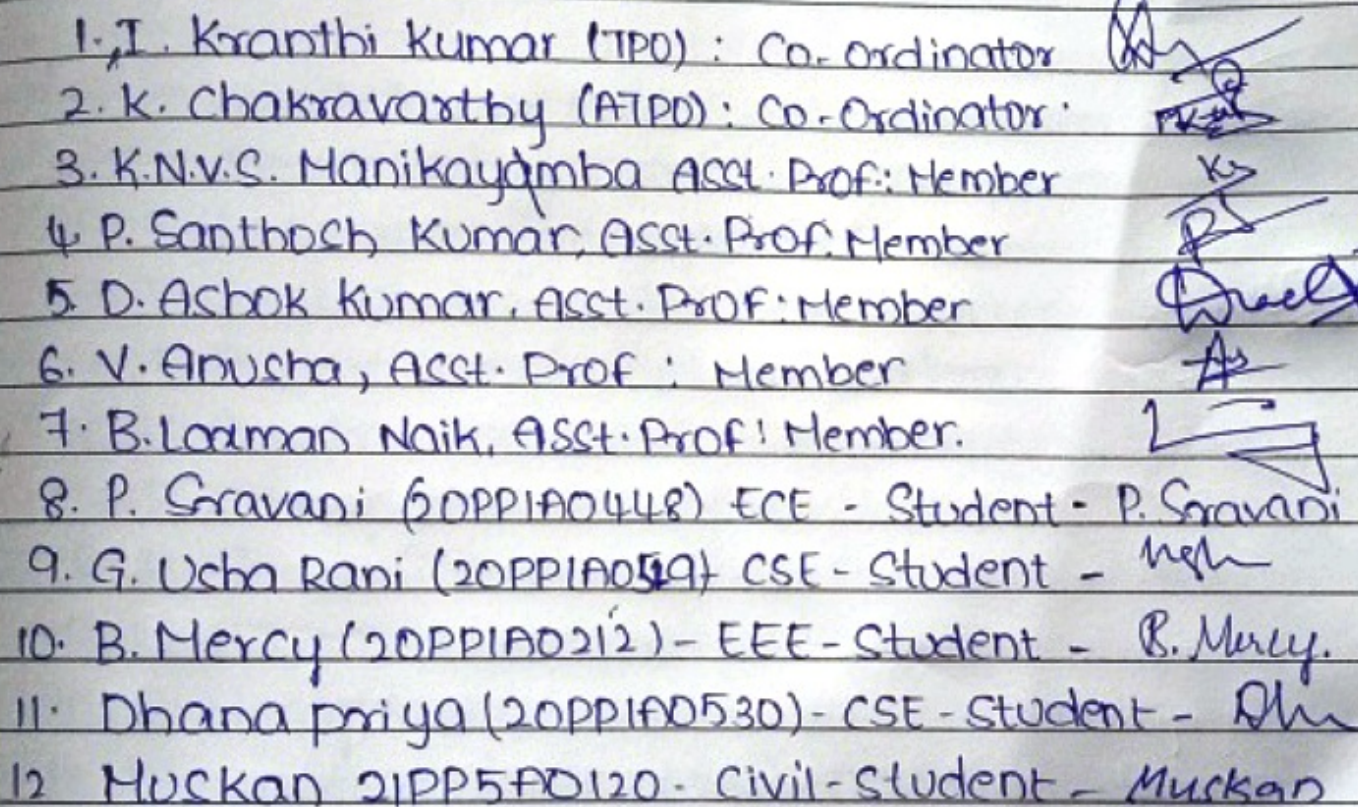 1. I. Kranthi Kumar (TPO) : Co-ordinator
2. K. Chakravarthy (ATPO) : Co-Ordinator.
3. K.N.V.S. Manikayamba Asst. Prof.: Member Ks
4. P. Santhosh Kumar, Asst. Prof. Member
5. D. Ashok Kumar, Asst. Prof : Member
6. V. Anusha, Asst. Prof : Member
7. B. Laxman Naik, Asst. Prof : Member.
8. P. Sravani (20PP1A0448) ECE - Student - P. Sravani
9. G. Usha Rani CSE - Student -
10. B. Mercy (20PP1A0212) - EEE - Student - B. Mercy.
11. Dhana priya (20PP1A0530) - CSE - Student -
12 Muskan 21PP5A0120 - Civil - Student - Muskan